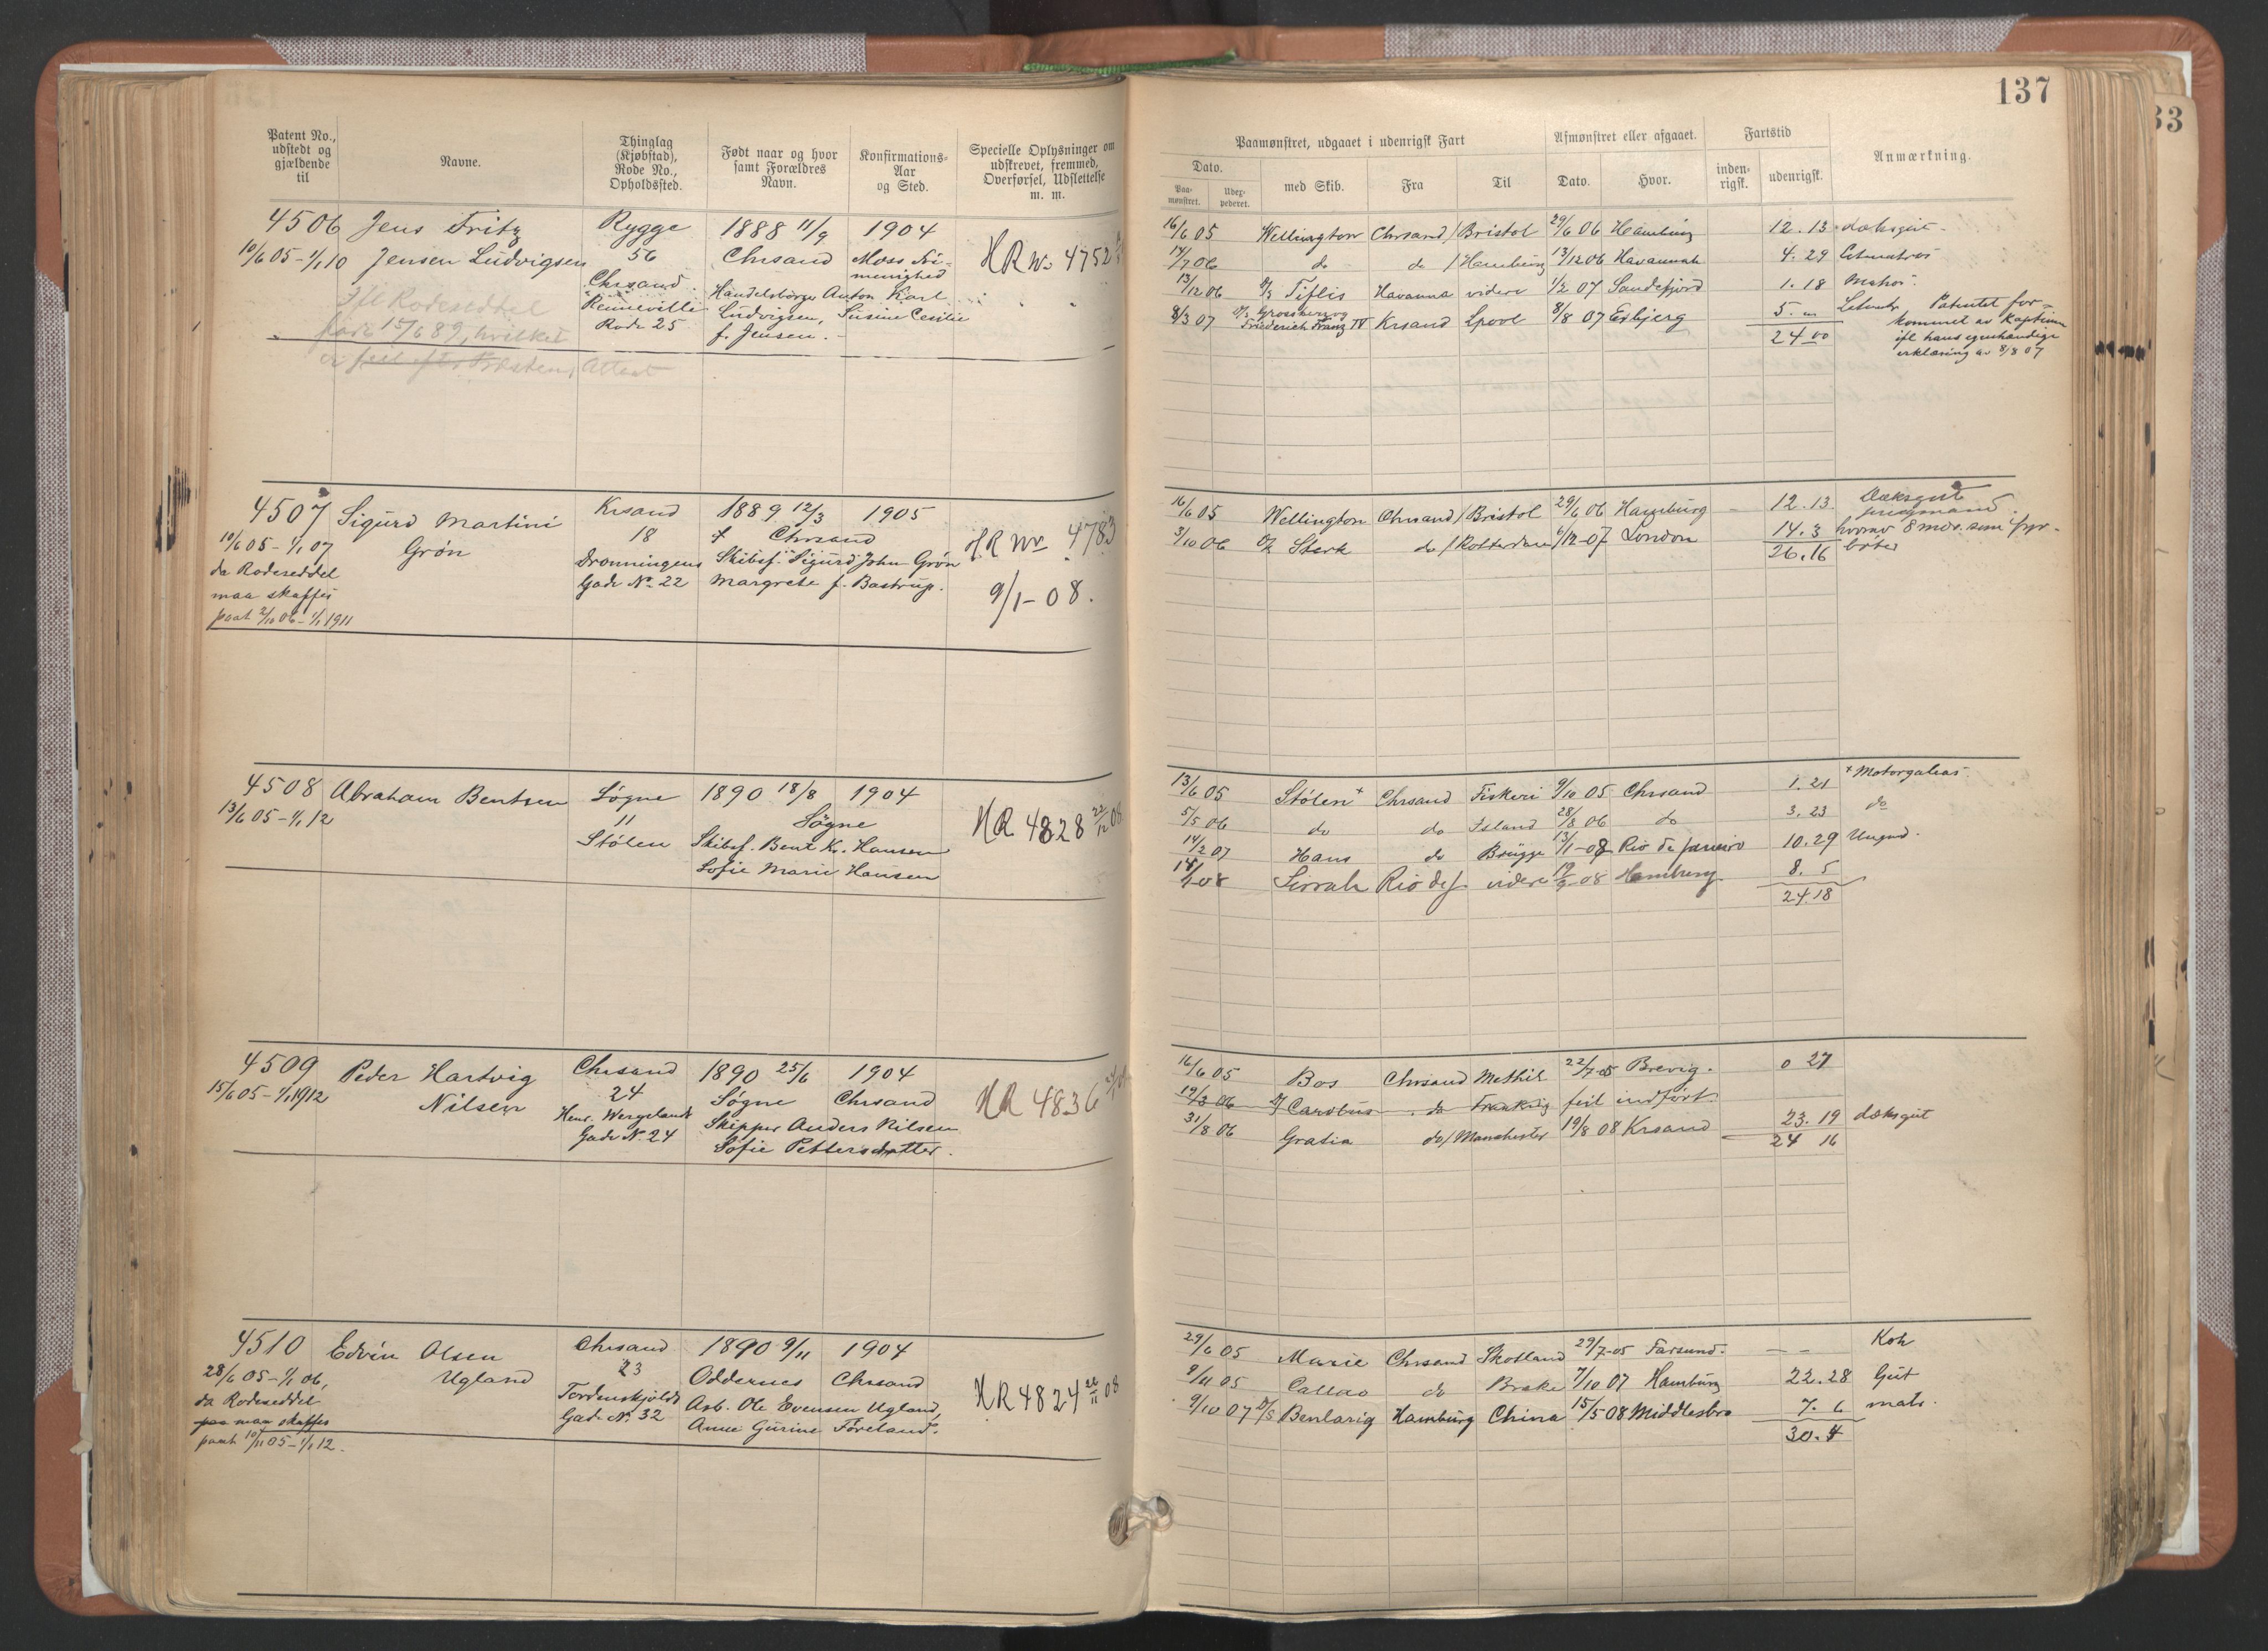 137
33
Patent No., udstedt og gjældende til
Navne.
Thinglag (Kjøbstad), Rode No., Opholdssted.
Født naar og hvor samt Forældres Navn.
Konfirmations-Aar og Sted.
Specielle Oplysninger om udskrevet, fremmed, Overførsel, Udslettelse m. m.
Paamønstret, udgaaet i udenrigsk Fart
Dato.
Paa-mønstret.
Udex-pederet.
med Skib.
Fra
Til
Afmønstret eller afgaaet.
Dato.
Hvor.
Fartstid
inden-rigsk.
udenrigsk.
Anmærkning.
4506 Jens Fritz Rygge 1888 11/9 1904
10/6 05-1/1 10 Jensen Ludvigsen 56 Chrsand Moss Fri-menighed HR No 4752
Chrsand Handelsborger Anton Karl
Renneville Ludvigsen, Susine Cecilie
Rode 25 f. Jensen.
Ifl Rodeseddel
født 15/6 89, hvilket
er feil efter Prestens Attest
16/6 05 Wellington Chrsand / Bristol 29/6 06 Hamburg 12. 13. dæksgut
17/7 06 do do / Hamburg 13/12 06 Havannah 4. 29 Letmatros
13/12 06 Tiflis Havanna videre 1/2 07 Sandefjord 1. 18 Matros.
8/3 07 Grossherzog Friederich Franz IV Krsand Lpool 8/8 07 Esbjerg 5. " Letmatr
24 00
Patentet for-
kommet av kaptein
ifl hans egenhændige
erklæring av 8/8 07
4507 Sigurd Martini Krsand 1889 12/3 1905
10/6 05-1/1 07 Grøn 18 Chrsand HR No 4783
da Rodeseddel Dronningens Skibsf. Sigurd John Grøn
maa skaffes Gade No. 22 Margrete f. Bastrup. 9/1-08.
paat 2/10 06-1/1 1911
16/6 05 Wellington Chrsand / Bristol 29/6 06 Hamburg 12. 13 Dæksgut
3/10 06 Sterk do / Rotterdam 6/12-07 London 14. 3 hvorav 8 mdr. som fyr-
26. 16 bøter
4508 Abraham Bentsen Søgne 1890 18/8 1904
13/6 05-1/1 12 11 Søgne HR 4828 22/12 08
Stølen Skibsf. Bent Kr. Hansen
Sofie Marie Hansen
13/6 05 Stølen+ Chrsand Fiskeri 9/10 05 Chrsand 1. 21 + Motorgalias.
5/5 06 do do Island 28/8 06 do 3. 23 do
14/2 07 Hans do Brügge 13/1-08 Rio de Janeiro 10. 29 Ungmd.
14/1-08 Sirrah Rio de J. videre 19/9-08 Hamburg 8. 5
24. 18
4509 Peder Hartvig Chrsand 1890 25/6 1904
15/6 05-1/1 1912 Nilsen 24 Søgne Chrsand HR 4836
Henr. Wergelands Skipper Anders Nilsen
Gade No. 24 Sofie Pettersdatter.
16/6 05 Bos Chrsand Methil 22/7-05 Brevig. 0 27
12/3 06 Carobus do Frankrig feil indført.
31/8 06 Gratia do / Manchester 19/8 08 Krsand 23. 19 dæksgut
24 16
4510 Edvin Olsen Chrsand 1890 9/11 1904
28/6 05-1/1 06, Ugland 23 Oddernes Chrsand HR 4824 26/11 08
da Rodeseddel Tordenskjolds Arb. Ole Evensen Ugland,
paa maa skaffes Gade No. 32 Anne Gurine Føreland.
paat 10/11 05-1/1 12.
29/6 05 Marie Chrsand Skotland 29/7-05 Farsund. - - Kok
9/11 05 Callao do Brake 7/10 07 Hamburg 22. 28 Gut
9/10 07 D/S Benlarig Hamburg China 15/5 08 Middlesbro 7. 6 matr.
30. 4